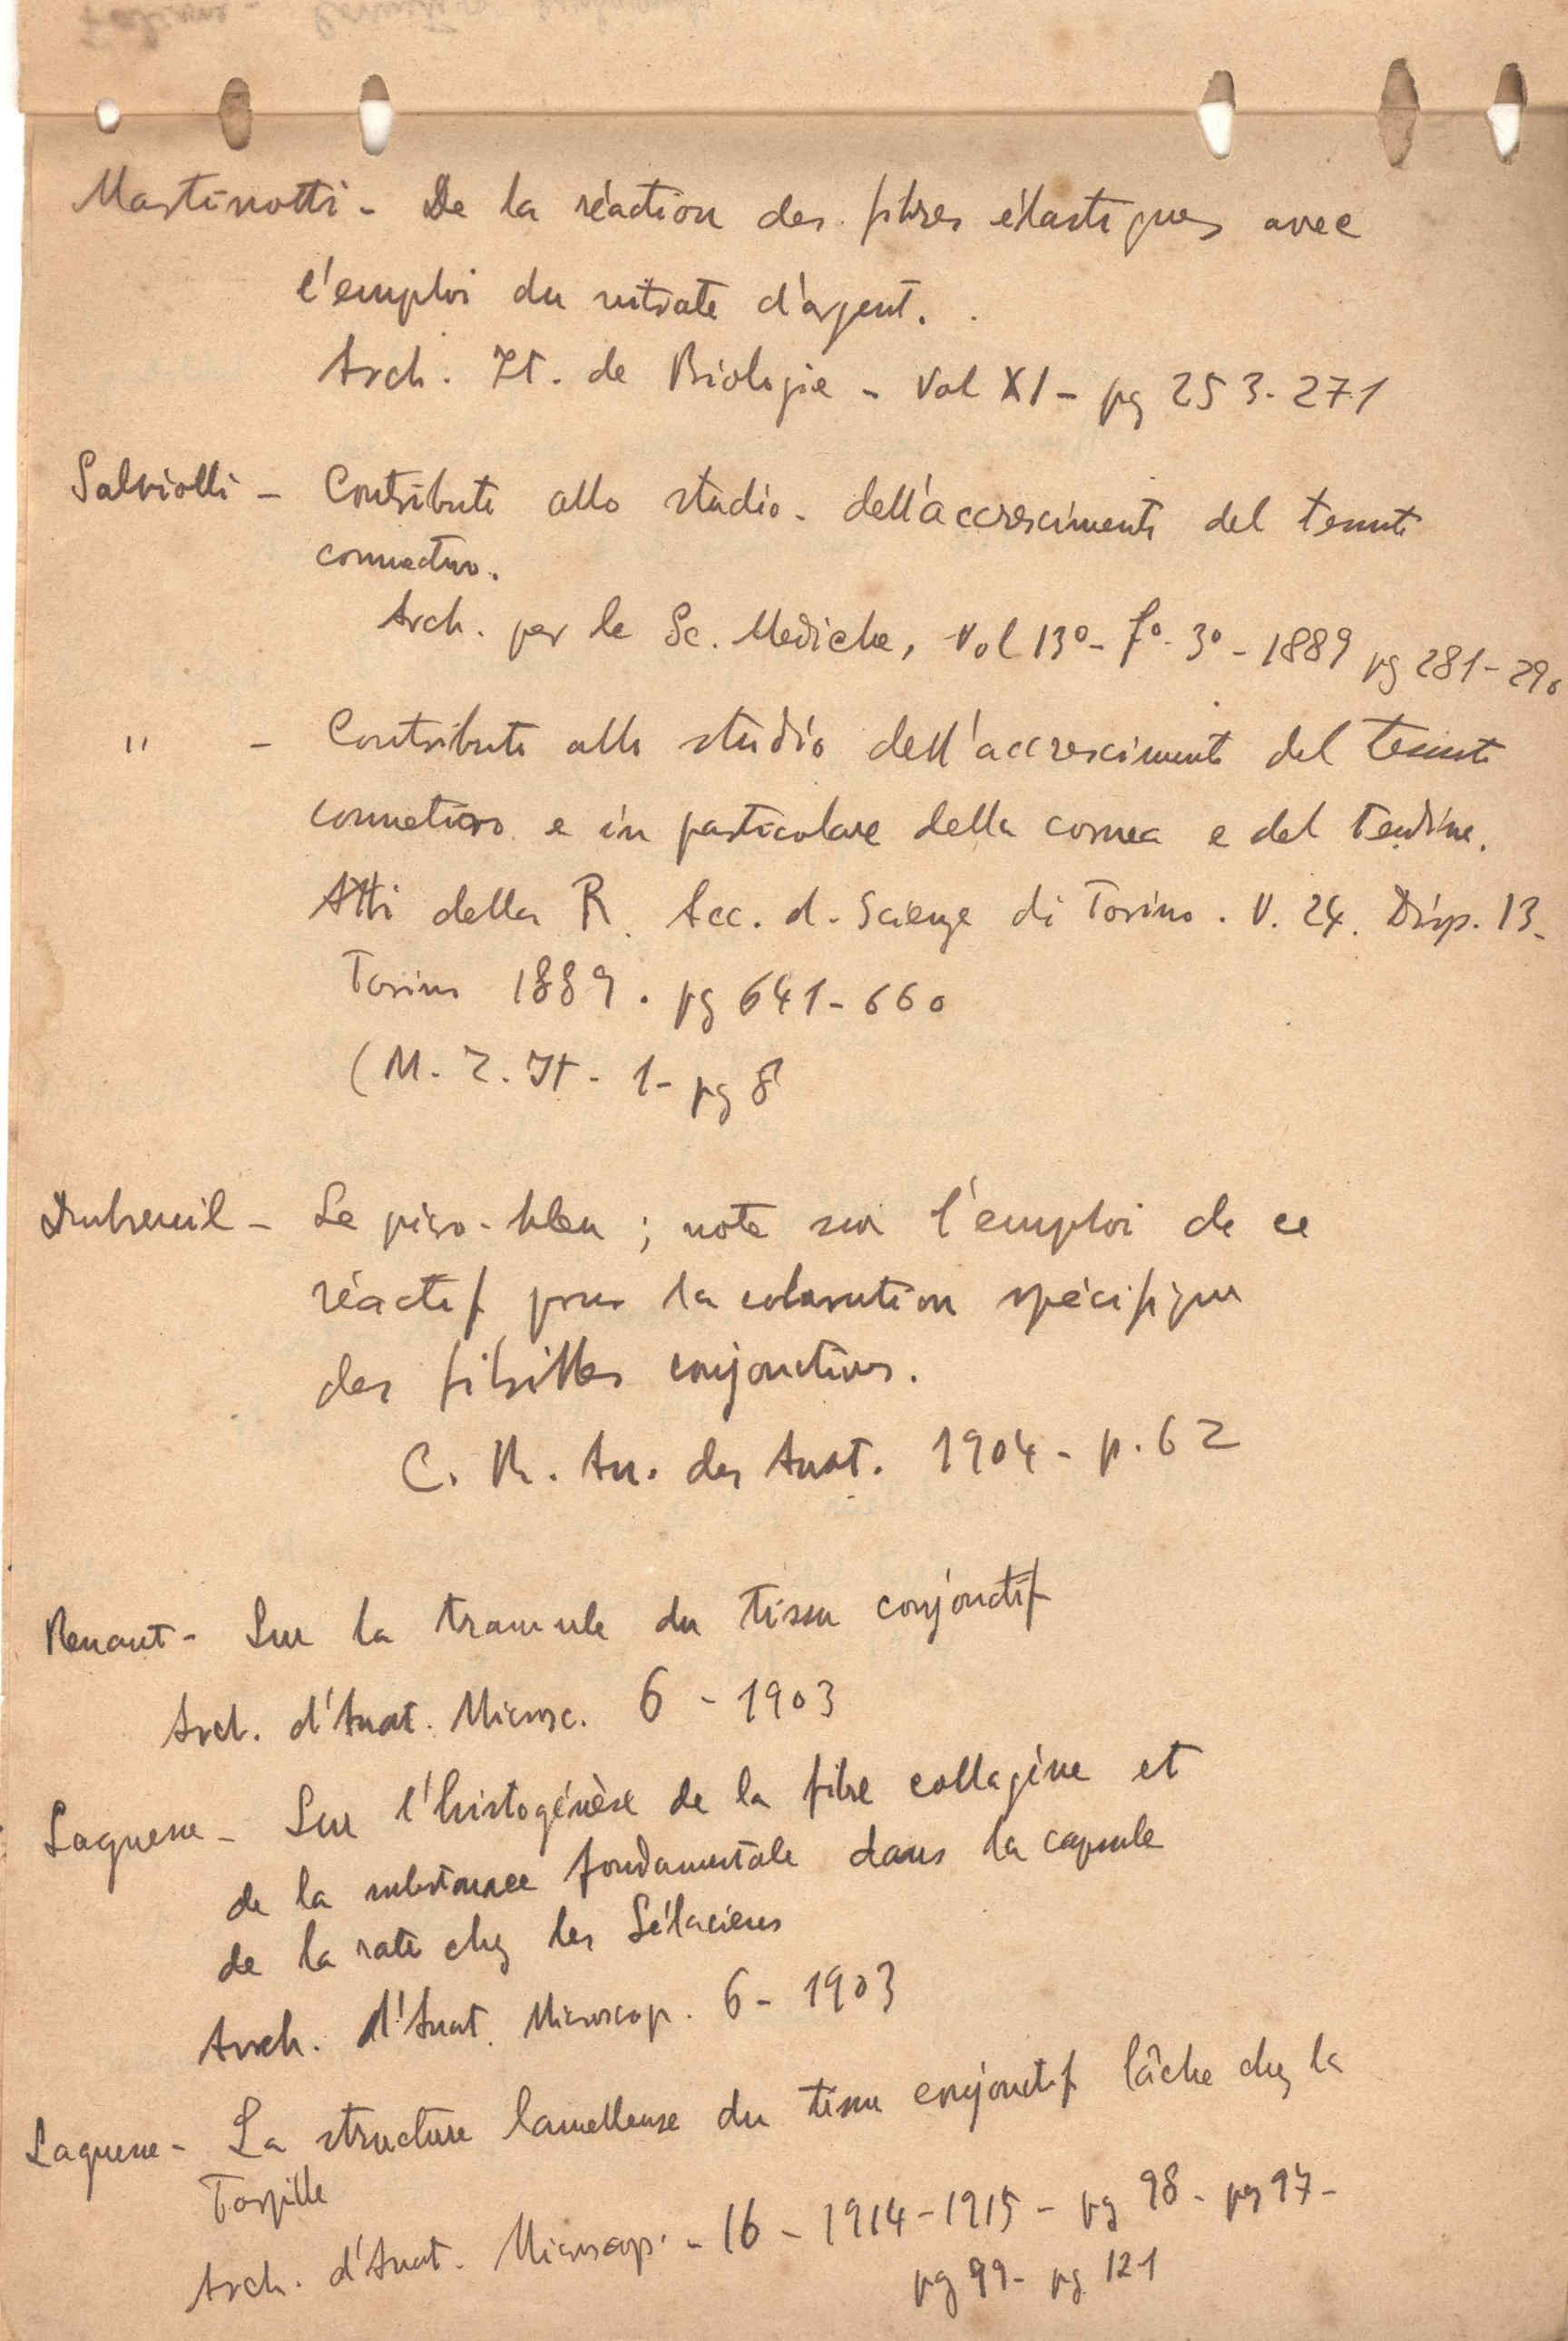 Martinotti - De la réaction des fibres élastiques avec
l'emploi du nitrate d'argent.
Arch. It. de Biologie - Vol XI - pg 253-271
Salviolli - Contributi allo studio - dell'accrescimento del tessuto
connectivo.
Arch. per le Sc. Mediche, Vol 13º - fº 3º - 1889 pg 281-290
" - Contributi allo studio dell'accrescimento del tessuto
connetivo e in particolare della cornea e del tendine.
Atti della R. Acc. d. Scienze di Torino. V. 24. Disp. 13-
Torino 1889. pg 641-660
(M. Z. It - 1 - pg 8
Dubreuil - Le picro-bleu ; note sur l'emploi de ce
réactif pour la coloration spécifique
des fibrilles conjonctives.
C. R. An. des Anat. 1904 - p. 62
Renaut - Sur la tramule du tissu conjonctif
Arch. d'Anat. Microsc. 6 - 1903
Laguesse - Sur l'histogénèse de la fibre collagène et
de la substance fondamentale dans la capsule
de la rate chez les Sélaciens
Arch. d'Anat. Microscop. 6 - 1903
Laguesse - La structure lamelleuse du tissu conjonctif lâche chez la
Torpille
Arch. d'Anat. Microscop. - 16 - 1914-1915 - pg 98 - pg 97 -
pg 99 - pg 121